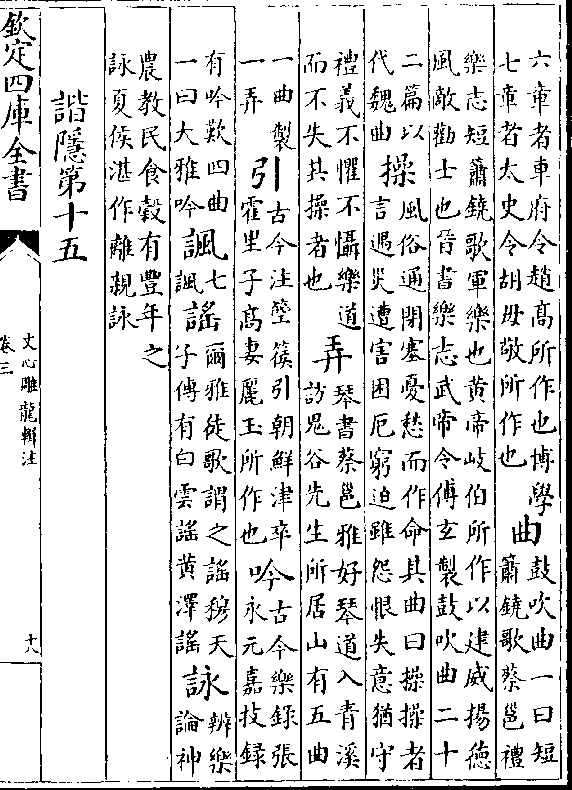 六章者車府令趙高所作也博學
七章者太史令胡毋敬所作也
曲
鼓吹曲一曰短
簫鐃歌蔡邕禮
樂志短簫鐃歌軍樂也黄帝岐伯所作以建威揚德
風敵勸士也晉書樂志武帝令傅玄製鼓吹曲二十
二篇以
代魏曲
操
風俗通閉塞憂愁而作命其曲曰操操者
言遇災遭害困厄窮迫雖怨恨失意猶守
禮義不懼不懾樂道
而不失其操者也
弄
琴書蔡邕雅好琴道入青溪
訪鬼谷先生所居山有五曲
一曲製
一弄
引
古今注箜篌引朝鮮津卒
霍里子高妻麗玉所作也
吟
古今樂錄張
永元嘉技錄
有吟歎四曲
一曰大雅吟
諷
七
諷
謠
爾雅徒歌謂之謠穆天
子傳有白雲謠黄澤謠
詠
辨樂
論神
農教民食穀有豐年之
詠夏侯湛作離親詠
諧隱第十五
欽定四庫全書
文心雕龍輯注
卷三
十八